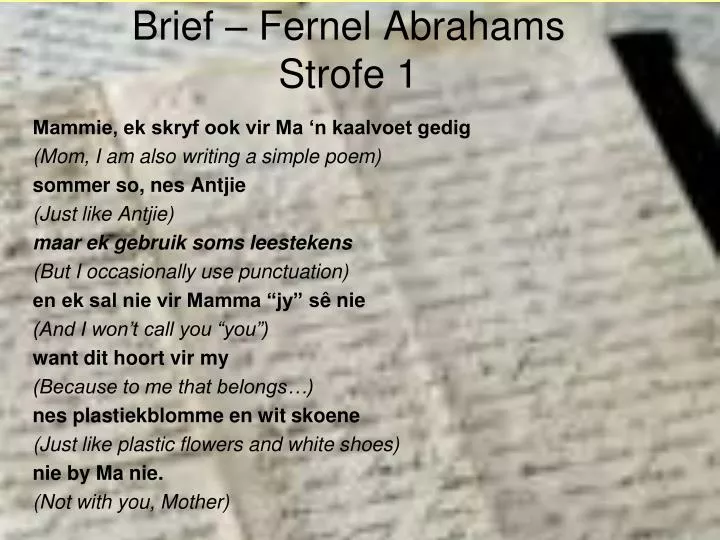 Brief – Fernel Abrahams
Strofe 1
Mammie, ek skryf ook vir Ma ‘n kaalvoet gedig
(Mom, I am also writing a simple poem)
sommer so, nes Antjie
(Just like Antjie)
maar ek gebruik soms leestekens
(But I occasionally use punctuation)
en ek sal nie vir Mamma “jy” sê nie
(And I won’t call you “you”)
want dit hoort vir my
(Because to me that belongs…)
nes plastiekblomme en wit skoene
(Just like plastic flowers and white shoes)
nie by Ma nie.
(Not with you, Mother)